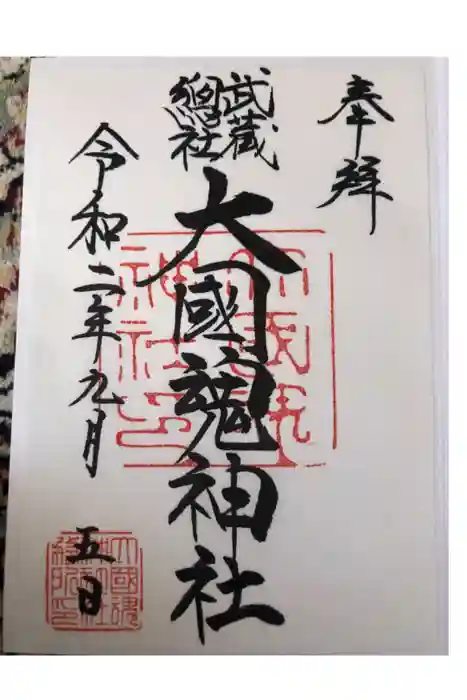 奉拜
武蔵
總社
大國魂神社
令和二年九月
五日